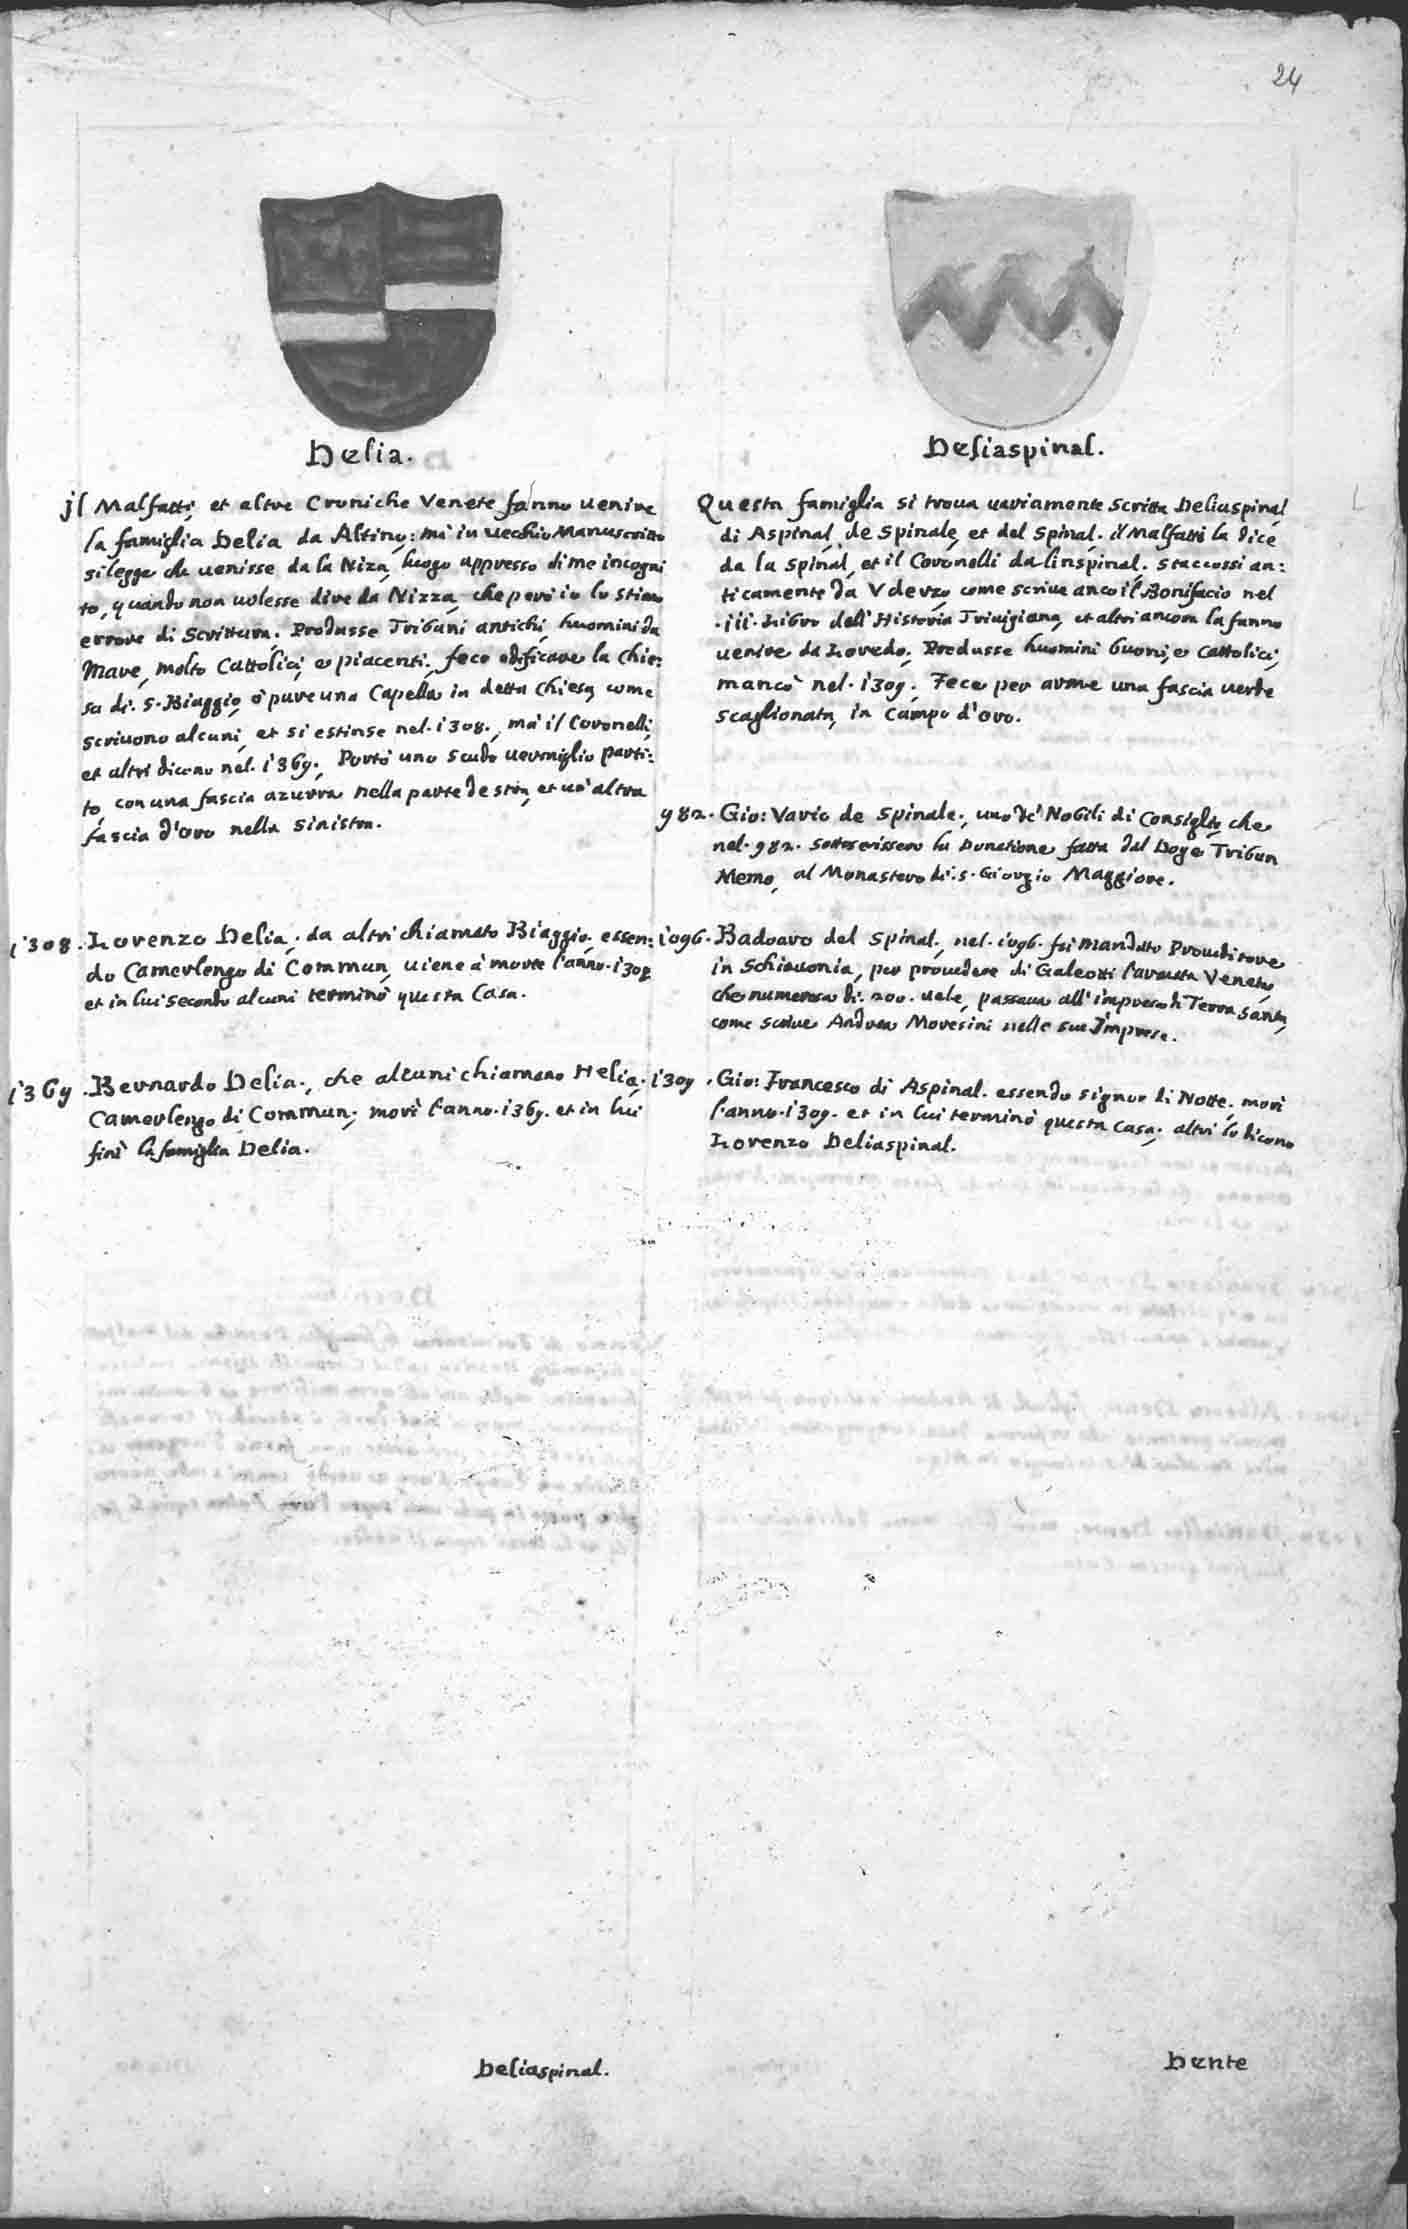 24
Delia.
il Malfatti, et altre Croniche Venete fanno uenire
la famiglia Delia da Altino; mà in uecchio Manuscritto
si legge che uenisse da la Niza, luogo appresso di me incogni
to, quando non uolesse dire da Nizza, che però io lo stimo
errore di Scrittura. Produsse Tribuni antichi, huomini da
Mare, molto Cattolici, e piacenti, fece edificare la Chie:
sa di. S. Biaggio, ò pure una Capella in detta Chiesa, come
scriuono alcuni, et si estinse nel. 1308., mà il Coronelli,
et altri dicono nel. 1369., Portò uno Scudo uermiglio parti:
to, con una fascia azurra nella parte destra, et un'altra
fascia d'oro nella sinistra.
1308. Lorenzo Delia, da altri chiamato Biaggio, essen:
do Camerlengo di Commun, uiene à morte l'anno. 1308
et in lui secondo alcuni terminò questa Casa.
1369. Bernardo Delia., che alcuni chiamano Helia,
Camerlengo di Commun; morì l'anno. 1369. et in lui
finì la famiglia Delia.
Deliaspinal.
Deliaspinal.
Questa famiglia si troua uariamente scritta Deliaspinal
di Aspinal, de Spinale, et del Spinal. il Malfatti la dice
da la Spinal, et il Coronelli da linspinal. staccossi an:
ticamente da Vderzo come scriue anco il Bonifacio nel
.iii. Libro dell'Historia Triuigiana, et altri ancora la fanno
uenire da Loredo. Produsse huomini buoni, e Cattolici,
mancò nel. 1309. Fece per arme una fascia uerde
scaglionata, in Campo d'oro.
982. Gio: Vario de Spinale., uno de' Nobili di Consiglio, che
nel. 982. sottoscrissero la Donatione fatta dal Doge Tribun
Memo, al Monastero di. S. Giorgio Maggiore.
1096. Badoaro del Spinal., nel. 1096. fù mandato Proueditore
in Schiauonia, per prouedere di Galeotti l'armata Veneta,
che numerosa di. 200. uele, passaua all'impresa di Terra Santa,
come scriue Andrea Moresini nelle sue Imprese.
1309. Gio: Francesco di Aspinal. essendo signor di Notte, morì
l'anno. 1309. et in lui terminò questa Casa, altri lo dicono
Lorenzo Deliaspinal.
Dente